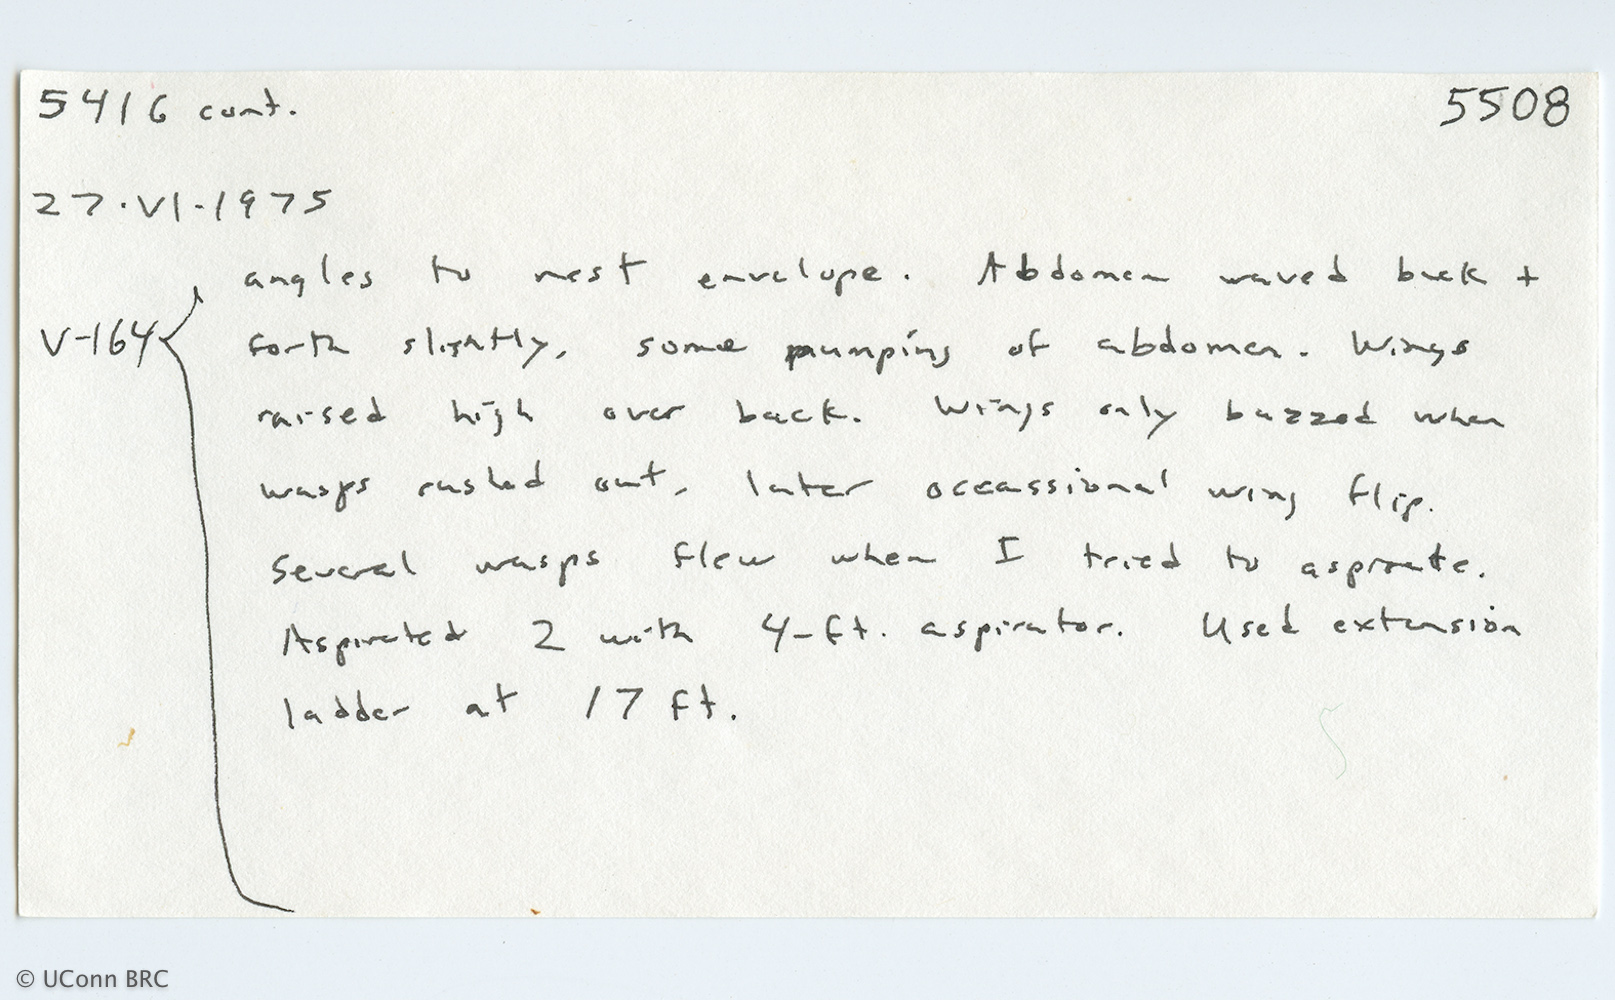 5416 cont. 5508
27·VI·1975
angles to nest envelope. Abdomen waved back +
V-164 forth slightly, some pumping of abdomen. Wings
raised high over back. Wings only buzzed when
wasps rushed out, later occassional wing flip.
Several wasps flew when I tried to aspirate.
Aspirated 2 with 4-ft. aspirator. Used extension
ladder at 17 ft.
© UConn BRC